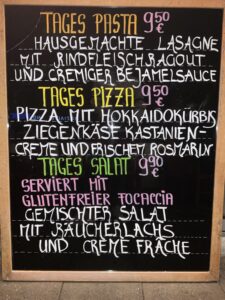 TAGES PASTA 9,50 €
HAUSGEMACHTE LASAGNE
MIT RINDFLEISCHRAGOUT
UND CREMIGER BEJAMELSAUCE
TAGES PIZZA 9,50 €
PIZZA MIT HOKKAIDOKÜRBIS
ZIEGENKÄSE KASTANIEN-
CREME UND FRISCHEM ROSMARIN
TAGES SALAT 9,90 €
SERVIERT MIT
GLUTENFREIER FOCACCIA
GEMISCHTER SALAT
MIT RÄUCHERLACHS
UND CRÈME FRÂCHE